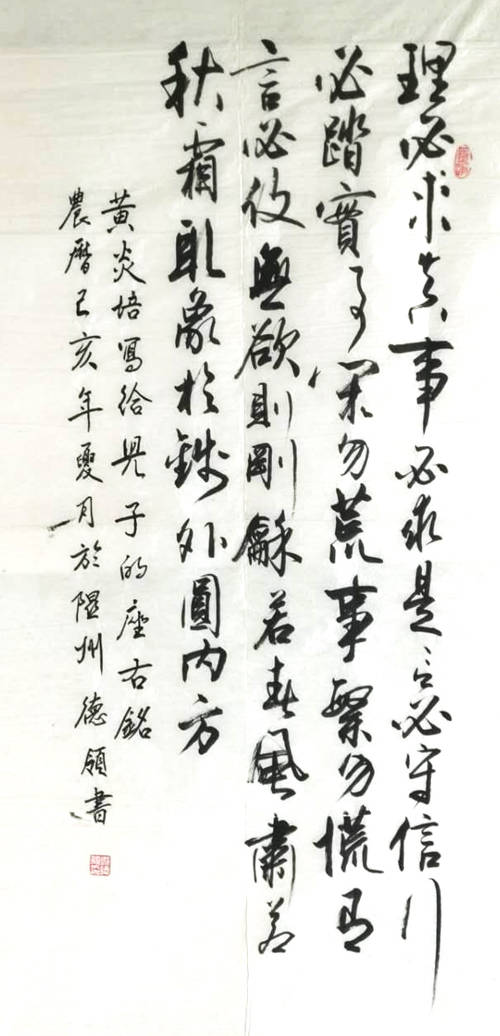 理必求真事必求是言必守信行
必踏實事閑勿荒事繁勿慌有
言必伩無欲則剛龢若春風肅若
秋霜取象於錢外圓内方
黄炎培寫給兒子的座右銘
農曆己亥年夏月於隰州德領書